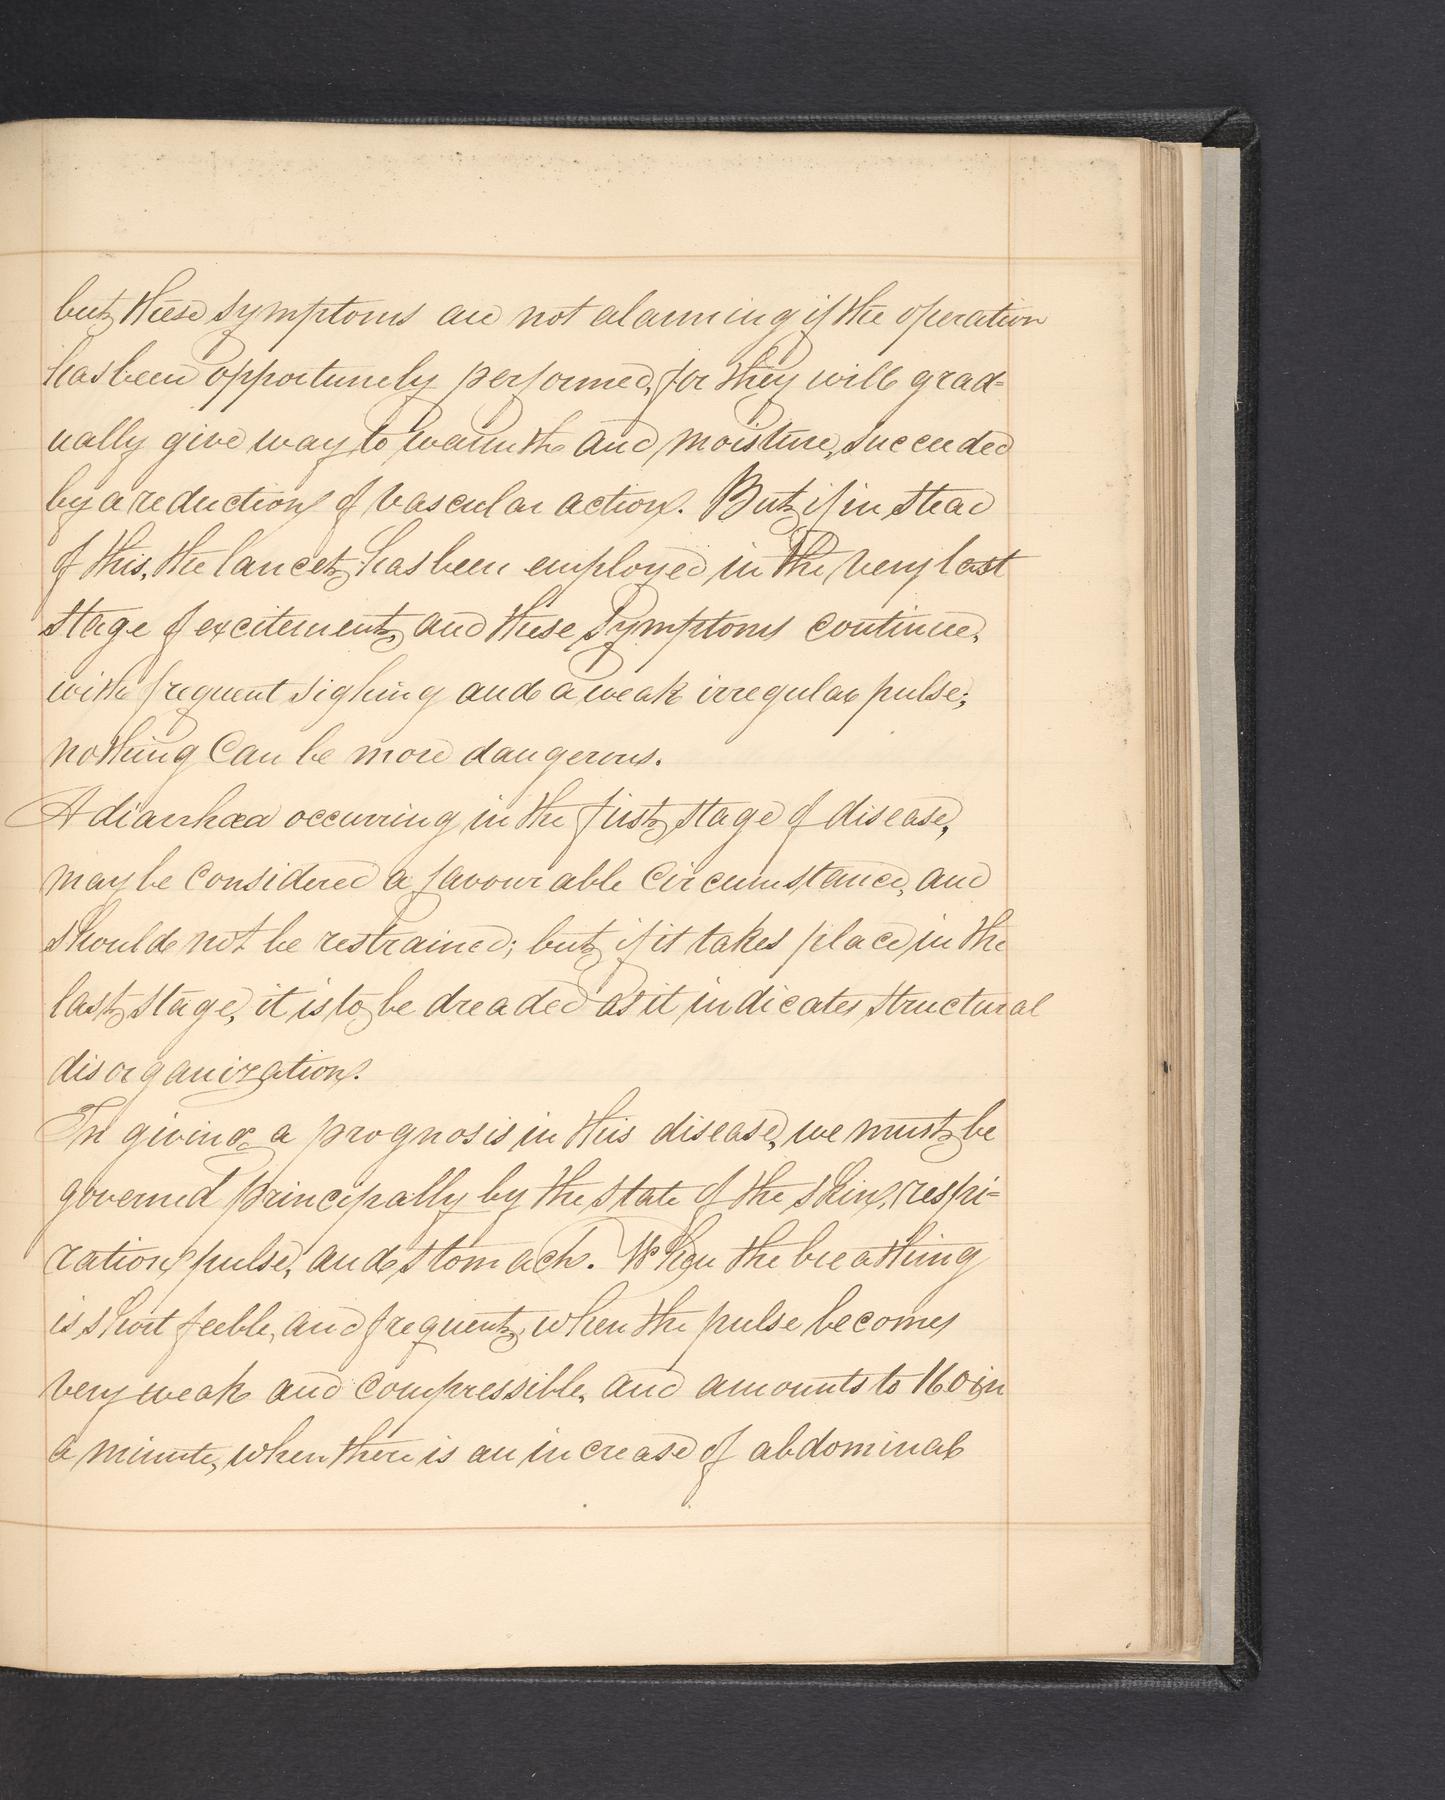 but these symptoms are not alarming if the operation
has been opportunely performed, for they will grad=
ually give way to warmth and moisture, succeeded
by a reduction of vascular action. But if instead
of this, the lancet has been employed in the very last
stage of excitement, and these symptoms continue,
with frequent sighing and a weak irregular pulse;
nothing can be more dangerous.
A diarrhœa occurring in the first stage of disease,
may be considered a favourable circumstance, and
should not be restrained; but if it takes place in the
last stage, it is to be dreaded as it indicates structural
disorganization.
In giving a prognosis in this disease, we must be
governed principally by the state of the skin, respi=
ration, pulse, and stomach. When the breathing
is short feeble, and frequent, when the pulse becomes
very weak and compressible, and amounts to 160 in
a minute, when there is an increase of abdominal